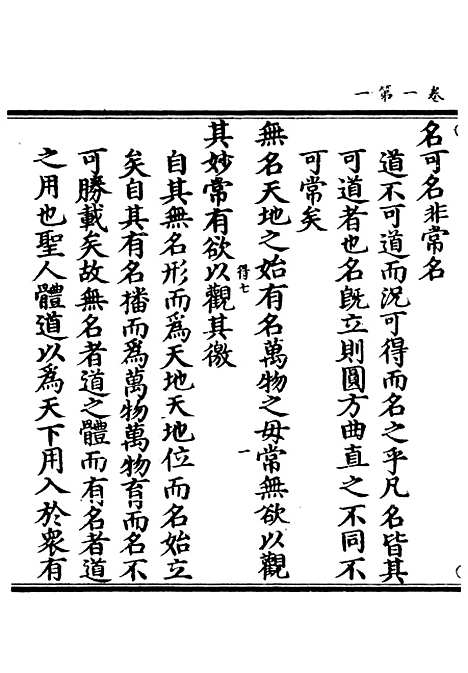 卷一第一
名可名非常名
道不可道而況可得而名之乎凡名皆其
可道者也名旣立則圓方曲直之不同不
可常矣
無名天地之始有名萬物之母常無欲以觀
得七
一
其妙常有欲以觀其徼
自其無名形而爲天地天地位而名始立
矣自其有名播而爲萬物萬物育而名不
可勝載矣故無名者道之體而有名者道
之用也聖人體道以爲天下用入於衆有